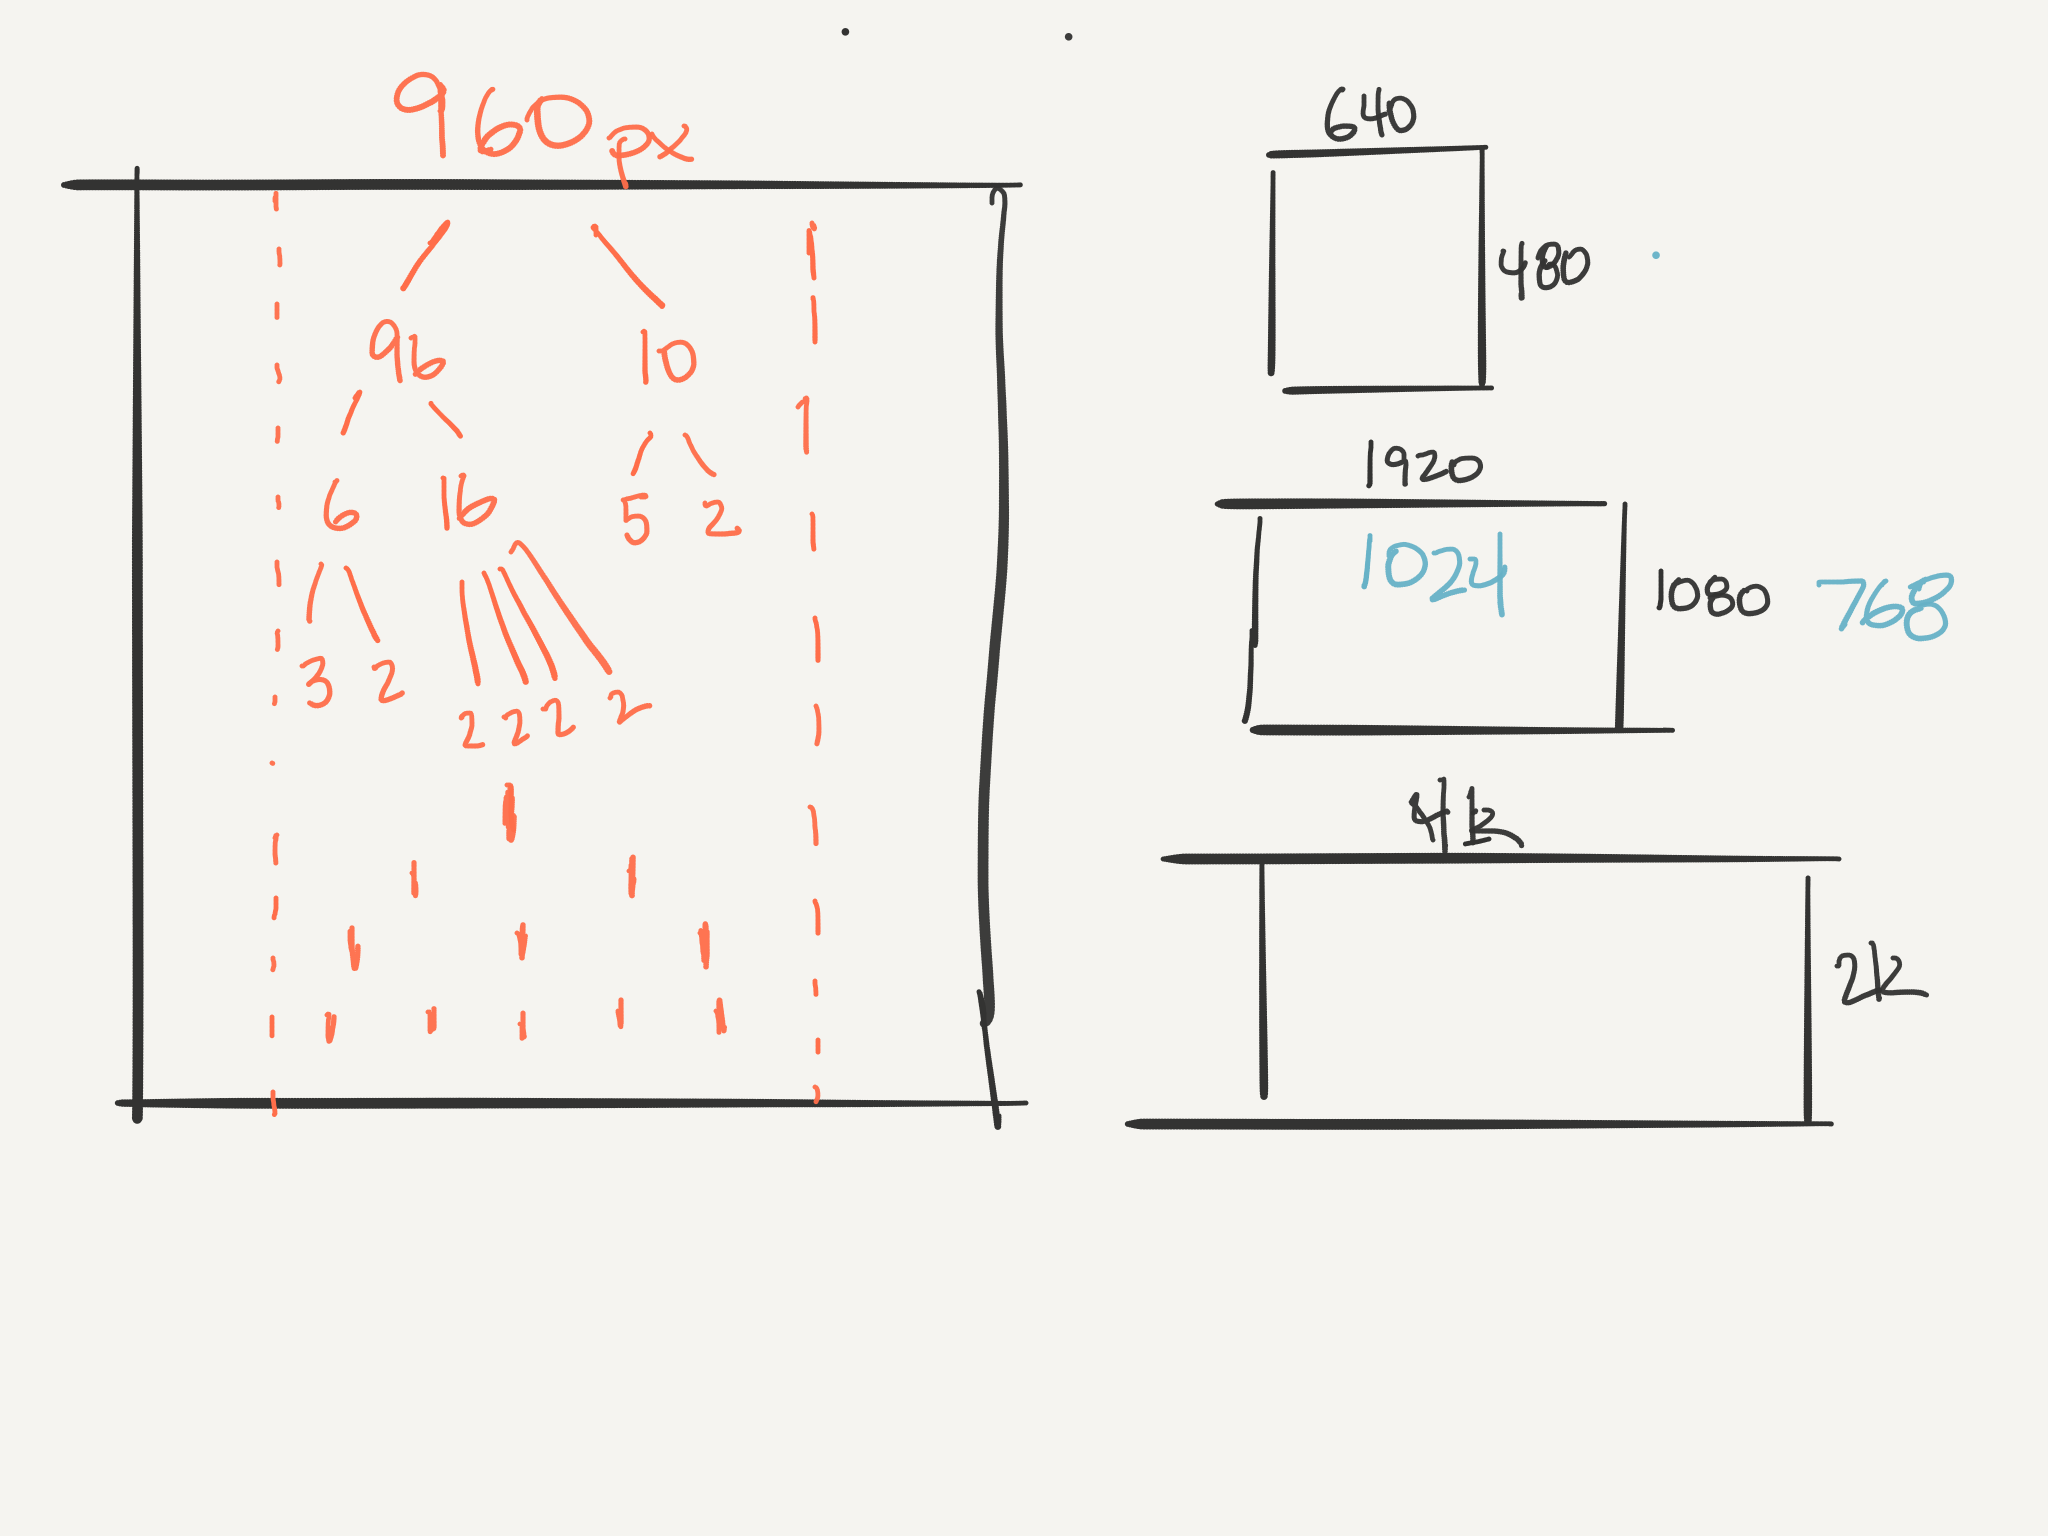 960px
96 10
6 16 5 2
3 2 2 2 2 2
640
480
1920
1024
1080 768
4k
2k